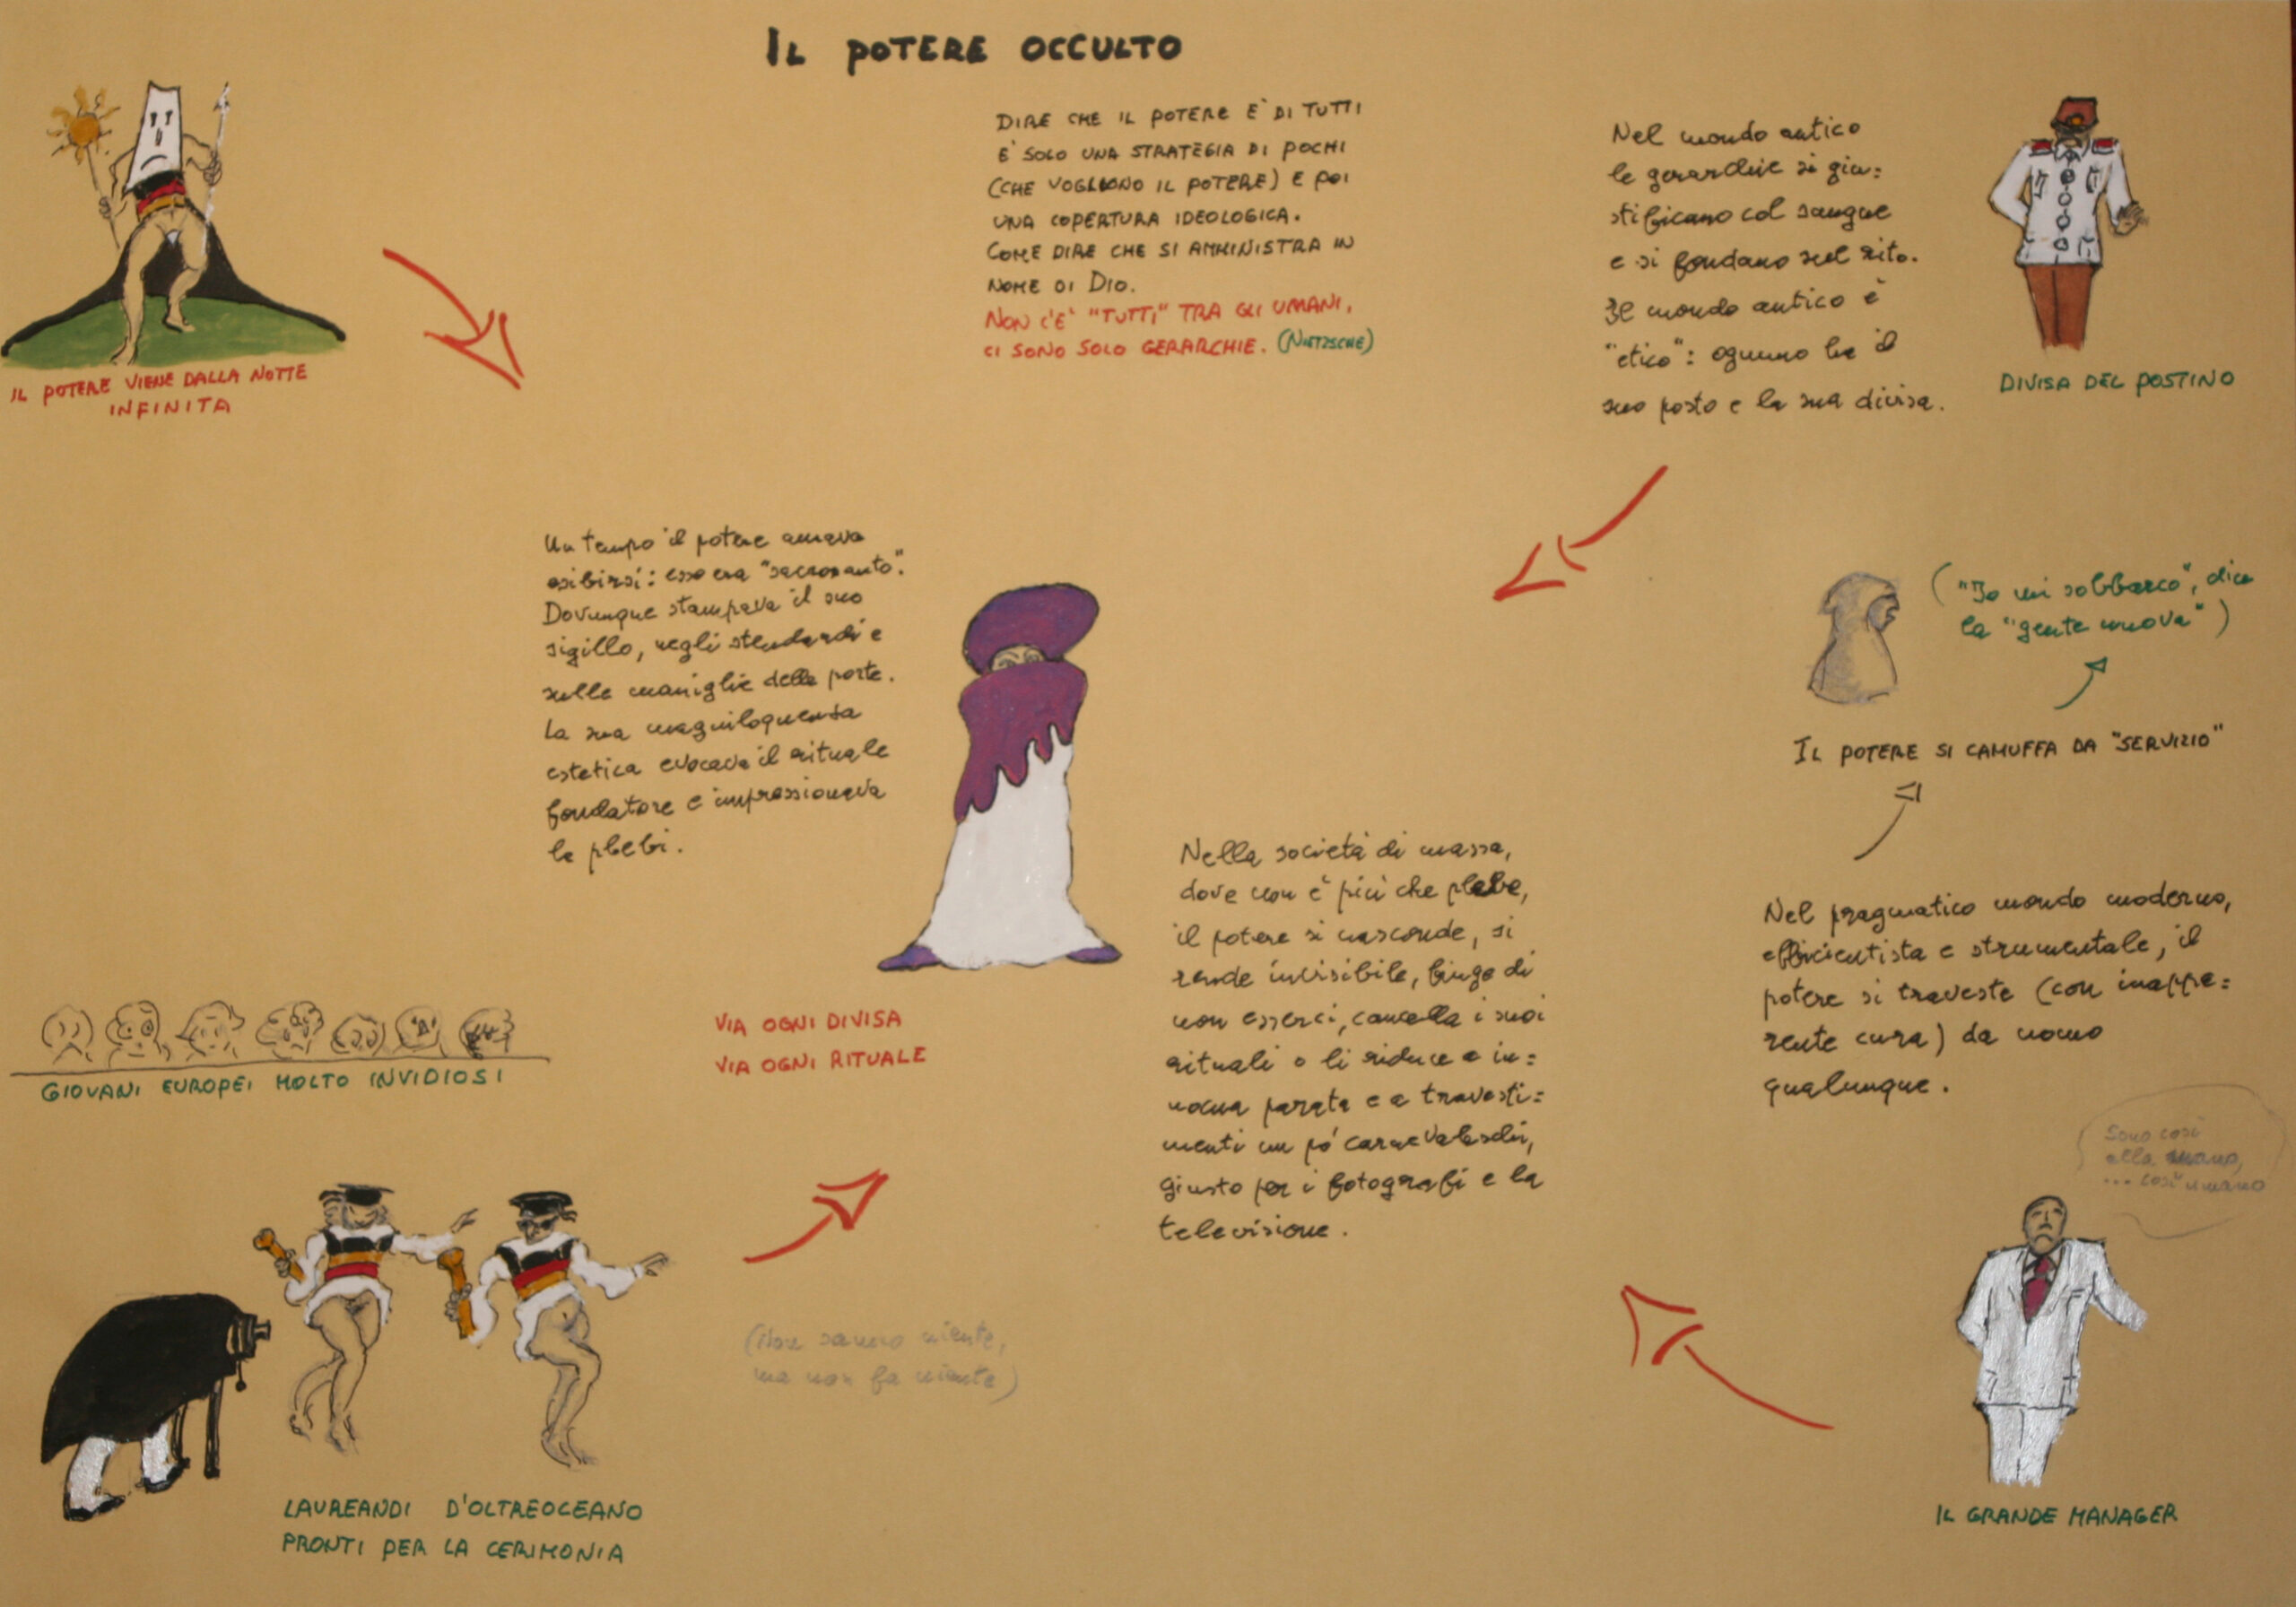 IL POTERE OCCULTO
DIRE CHE IL POTERE E' DI TUTTI
E' SOLO UNA STRATEGIA DI POCHI
(CHE VOGLIONO IL POTERE) E POI
UNA COPERTURA IDEOLOGICA.
COME DIRE CHE SI AMMINISTRA IN
NOME DI DIO.
NON C'E' "TUTTI" TRA GLI UMANI,
CI SONO SOLO GERARCHIE. (NIETZSCHE)
IL POTERE VIENE DALLA NOTTE
INFINITA
Nel mondo antico
le gerarchie si giu=
stificano col sangue
e si fondano sul rito.
Il mondo antico è
"etico": ognuno ha il
suo posto e la sua divisa.
DIVISA DEL POSTINO
Un tempo il potere amava
esibirsi: esso era "sacrosanto".
Dovunque stampava il suo
sigillo, negli stendardi e
sulle maniglie delle porte.
La sua magniloquenza
estetica evocava il rituale
fondatore e impressionava
le plebi.
("Io mi sobbarco", dice
la "gente nuova")
IL POTERE SI CAMUFFA DA "SERVIZIO"
Nella società di massa,
dove non è più che plebe,
il potere si nasconde, si
rende invisibile, finge di
non esserci, cancella i suoi
rituali o li riduce a in=
nocua parata e a travesti=
menti un pó carnevaleschi,
giusto per i fotografi e la
televisione.
Nel pragmatico mondo moderno,
efficientista e strumentale, il
potere si traveste (con inappa=
rente cura) da uomo
qualunque.
GIOVANI EUROPEI MOLTO INVIDIOSI
VIA OGNI DIVISA
VIA OGNI RITUALE
Sono così
alla mano,
... così umano
(Non sanno niente,
ma non fa niente)
LAUREANDI D'OLTREOCEANO
PRONTI PER LA CERIMONIA
IL GRANDE MANAGER